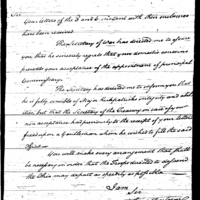 Sir
Your letters of the 3 and 6 instant with their inclosures
have been received.
The Secretary of War has directed me to assure
you that he sincerely regrets that your domestic concerns
prevents your acceptance of the appointment of principal
Commissary.
The Secretary has directed me to inform you that
he is fully sensible of Major Kirkpatricks integrity and abi
lities but that the Secretary of the Treasury on case of your
non acceptance had previously to the receipt of your letter
fixed upon a Gentleman whom he wished to fill the said
Office.
You will make every arrangement that shall
be necessary in order that the Troops directed to descend
the Ohio may depart as speedily as possible.
I am
Sir